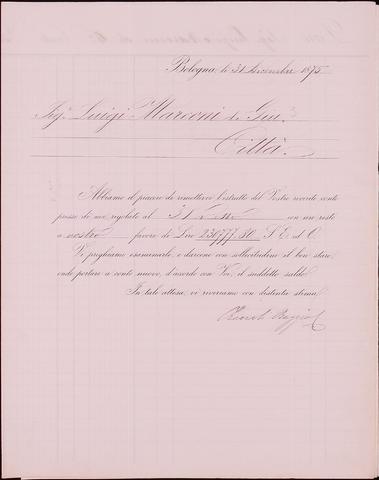 Bologna, li 31 Dicembre 1875
Sig.r Luigi Marconi
Città
Abbiamo il piacere di rimettervi l'estratto del Vostro recordo conto
presso di noi regolato al 31 con un resto
a nostro favore di Lire 230777.80 S. E. ed O.
Vi preghiamo esaminarlo, e darcene con sollecitudine il ben stare,
onde portare a conto nuovo, d'accordo con Voi, il suddetto saldo.
In tale attesa, vi riveriamo con distinta stima